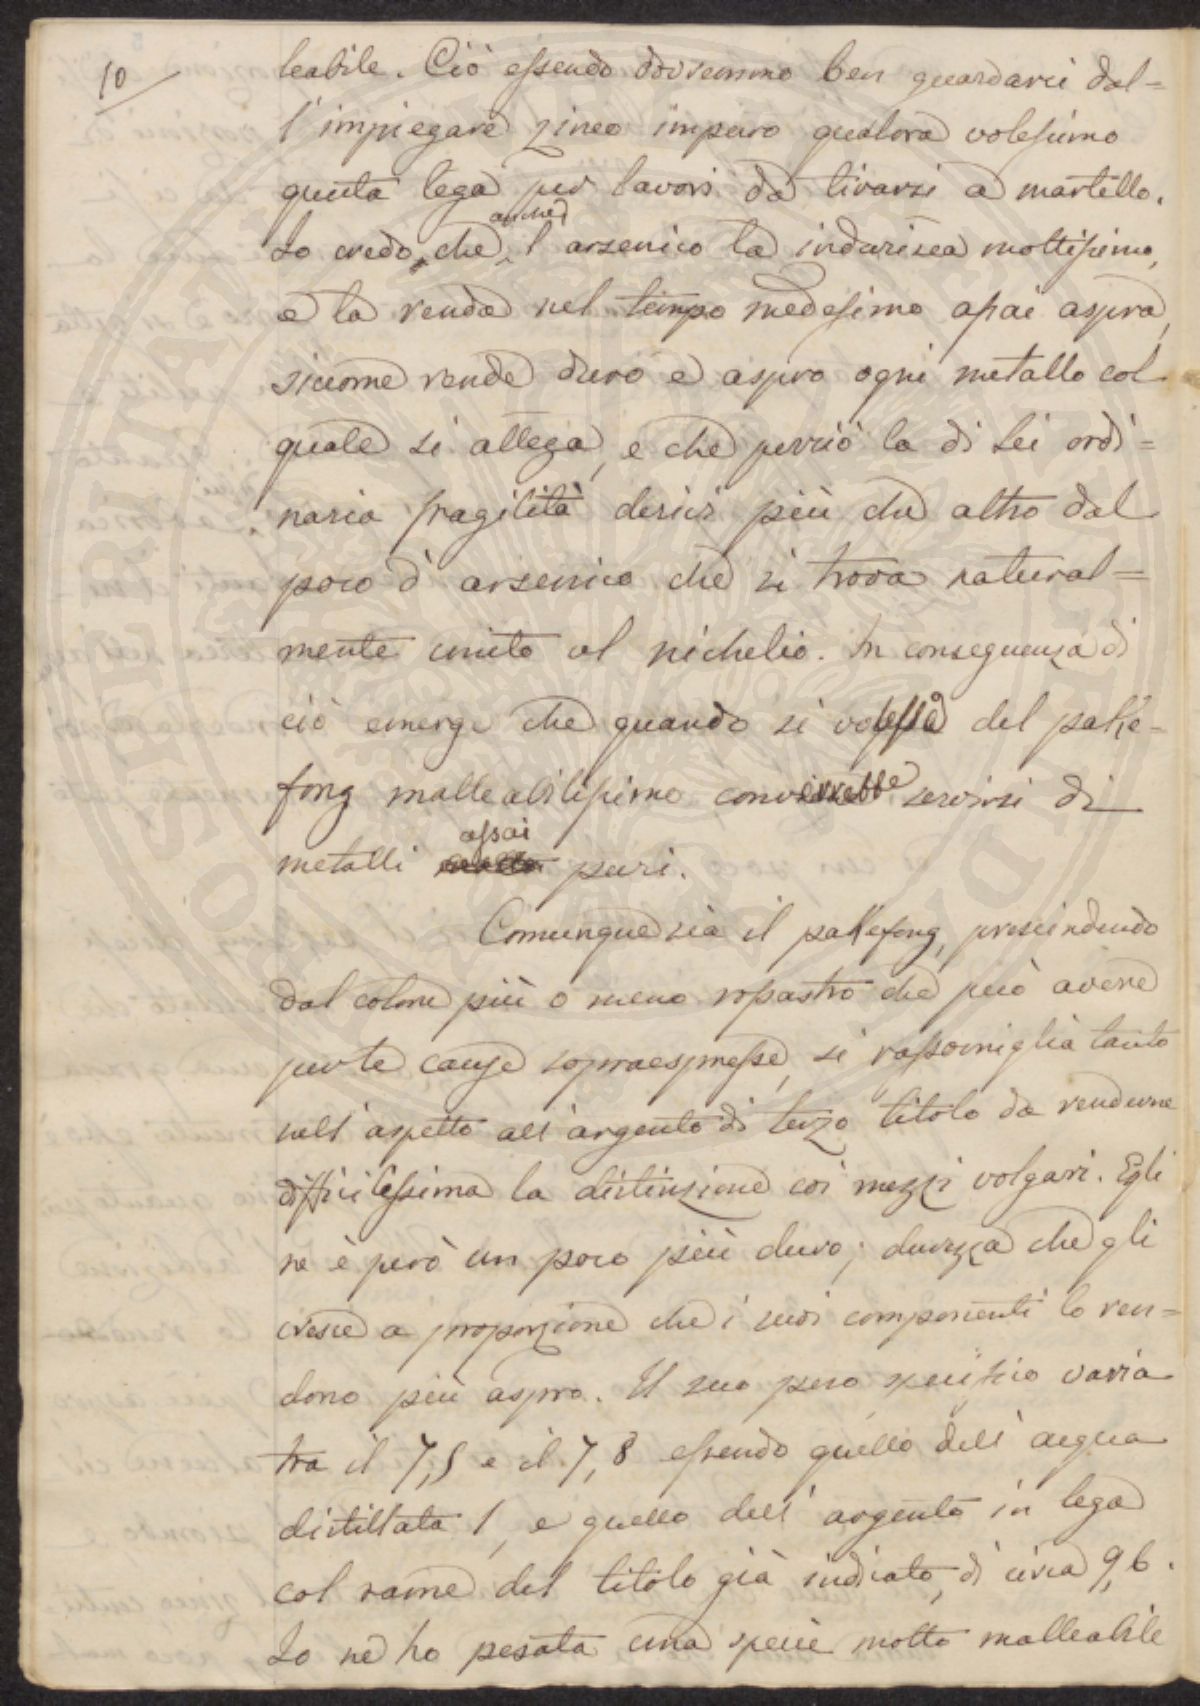 10
leabile. Ciò essendo dovremmo ben guardarci dal=
l'impiegare zinco impuro qualora volessimo
questa lega per lavori da tirarsi a martello.
anche
Io credo, che l'arsenico la indurisca moltissimo,
e la renda nel tempo medesimo assai aspra,
siccome rende duro e aspro ogni metallo col
quale si allega, e che perciò la di lei ordi=
naria fragilità derivi più che altro dal
poco d'arsenico che si trova natural=
mente unito al nichelio. In conseguenza di
ciò emerge che quando si volesse del pakfe=
fong malleabilissimo converrebbe servirsi di
assai
metalli puri.
Comunque sia il pakefong, prescindendo
dal colore più o meno rossastro che può avere
per le cause sopraespresse, si rassomiglia tanto
nell'aspetto all'argento di terzo titolo da renderne
difficilissima la distinzione coi mezzi volgari. Egli
ne è però un poco più duro; durezza che gli
cresce a proporzione che i suoi componenti lo ren=
dono più aspro. Il suo peso specifico varia
tra il 7,5 e il 7,8 essendo quello dell'acqua
distillata 1, e quello dell'argento in lega
col rame del titolo già indicato, di circa 9,6.
Io ne ho pesata una specie molto malleabile